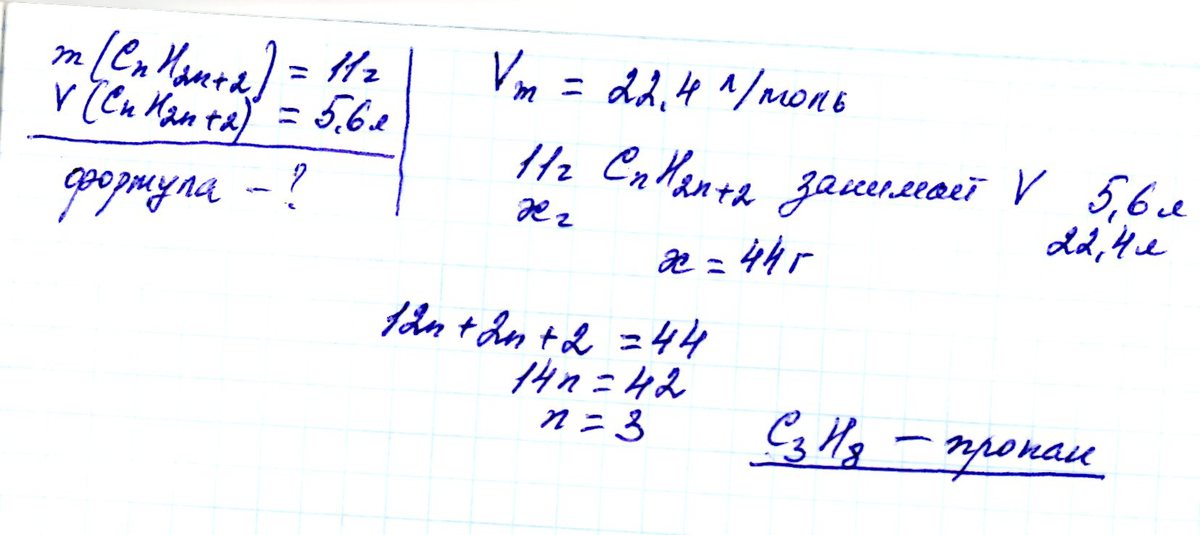 m(CnH2n+2) = 11г
V(CnH2n+2) = 5,6л
формула – ?
Vm = 22,4 л/моль
11г CnH2n+2 занимает V 5,6л
xг 22,4л
x = 44г
12n + 2n + 2 = 44
14n = 42
n = 3
C3H8 – пропан